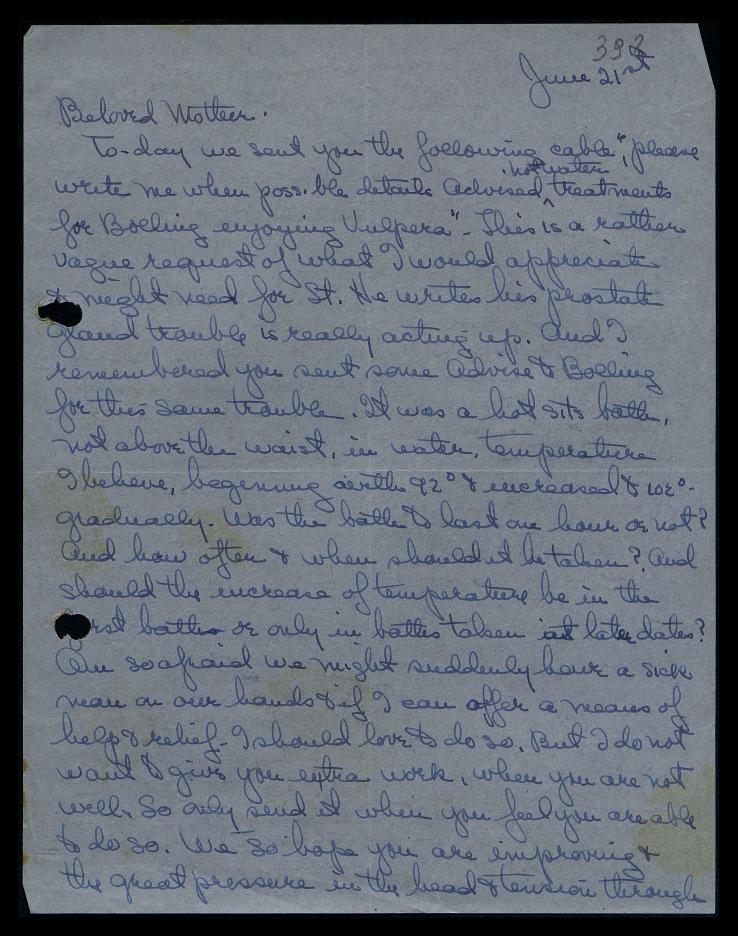 392
June 21st
Beloved Mother.
To-day we sent you the following cable ", please
hot water
write me when possible details advised treatments
for Boelling enjoying Vulpera" - This is a rather
vague request of what I would appreciate
& might need for St. He writes his prostate
gland trouble is really acting up. And I
remembered you sent some advise to Boelling
for this same trouble. It was a hot sits bath,
not above the waist, in water, temperature
I believe, beginning with 92° & increased to 102° -
gradually. Was the bath to last one hour or not?
And how often & when should it be taken? And
should the increase of temperature be in the
rst bath or only in baths taken at later dates?
Am so afraid we might suddenly have a sick
man on our hands & if I can offer a means of
help & relief - I should love to do so. But I do not
want to give you extra work, when you are not
well. So only send it when you feel you are able
to do so. We so hope you are improving &
the great pressure in the head & tension through